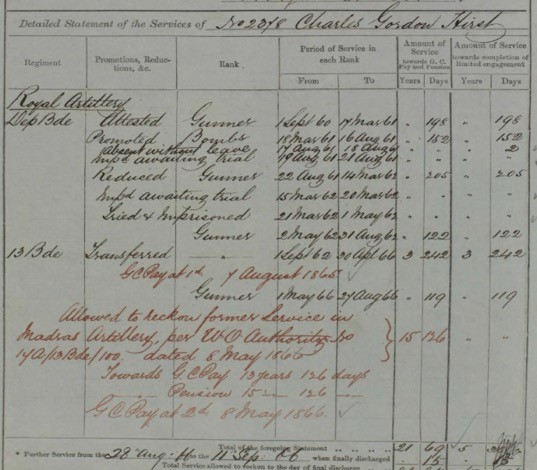 Detailed Statement of the Services of No 2378 Charles Gordon Hirst
Regiment Promotions, Reductions, &c. Rank Period of Service in each Rank Amount of Service towards G. C. Pay and Pension Amount of Service towards completion of limited engagement
From To Years Days Years Days
Royal Artillery
Dep Bde Attested Gunner 1 Sept 60 17 Mar 61 " 198 " 198
Promoted Bombr 18 Mar 61 16 Aug 61 " 152 " 152
absent without leave 17 Aug 61 18 Aug 61 " 2
Impd awaiting trial 19 Aug 61 21 Aug 61
Reduced Gunner 22 Aug 61 14 Mar 62 " 205 " 205
Impd awaiting trial 15 Mar 62 20 Mar 62
Tried & Imprisoned 21 Mar 62 1 May 62
Gunner 2 May 62 31 Aug 62 " 122 " 122
13 Bde Transferred 1 Sept 62 30 Apl 66 3 242 3 242
GC Pay at 1d 7 August 1865
Gunner 1 May 66 27 Aug 66 " 119 " 119
Allowed to reckon former Service in
Madras Artillery, per W.O Authority No 15 126 " "
14A/13Bde/100. dated 8 May 1866
Towards GC Pay 13 years 126 days
Pension 15 " 126
GC Pay at 2d 8 May 1866
Total of the foregoing Statement 21 69 5
* Further Service from the 28 Aug. 66 to the 11 Sep. 66 when finally discharged " 15 15
Total Service allowed to reckon to the day of final discharge